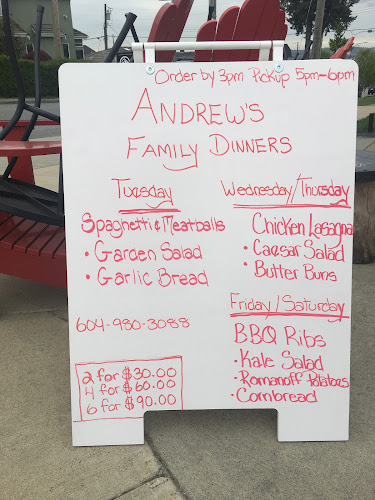 Order by 3pm Pickup 5pm-6pm
ANDREW'S
FAMILY DINNERS
Tuesday
Spaghetti & Meatballs
• Garden Salad
• Garlic Bread
604-980-3088
2 for $30.00
4 for $60.00
6 for $90.00
Wednesday/Thursday
Chicken Lasagna
• Caesar Salad
• Butter Buns
Friday/Saturday
BBQ Ribs
• Kale Salad
• Romanoff Potatoes
• Cornbread